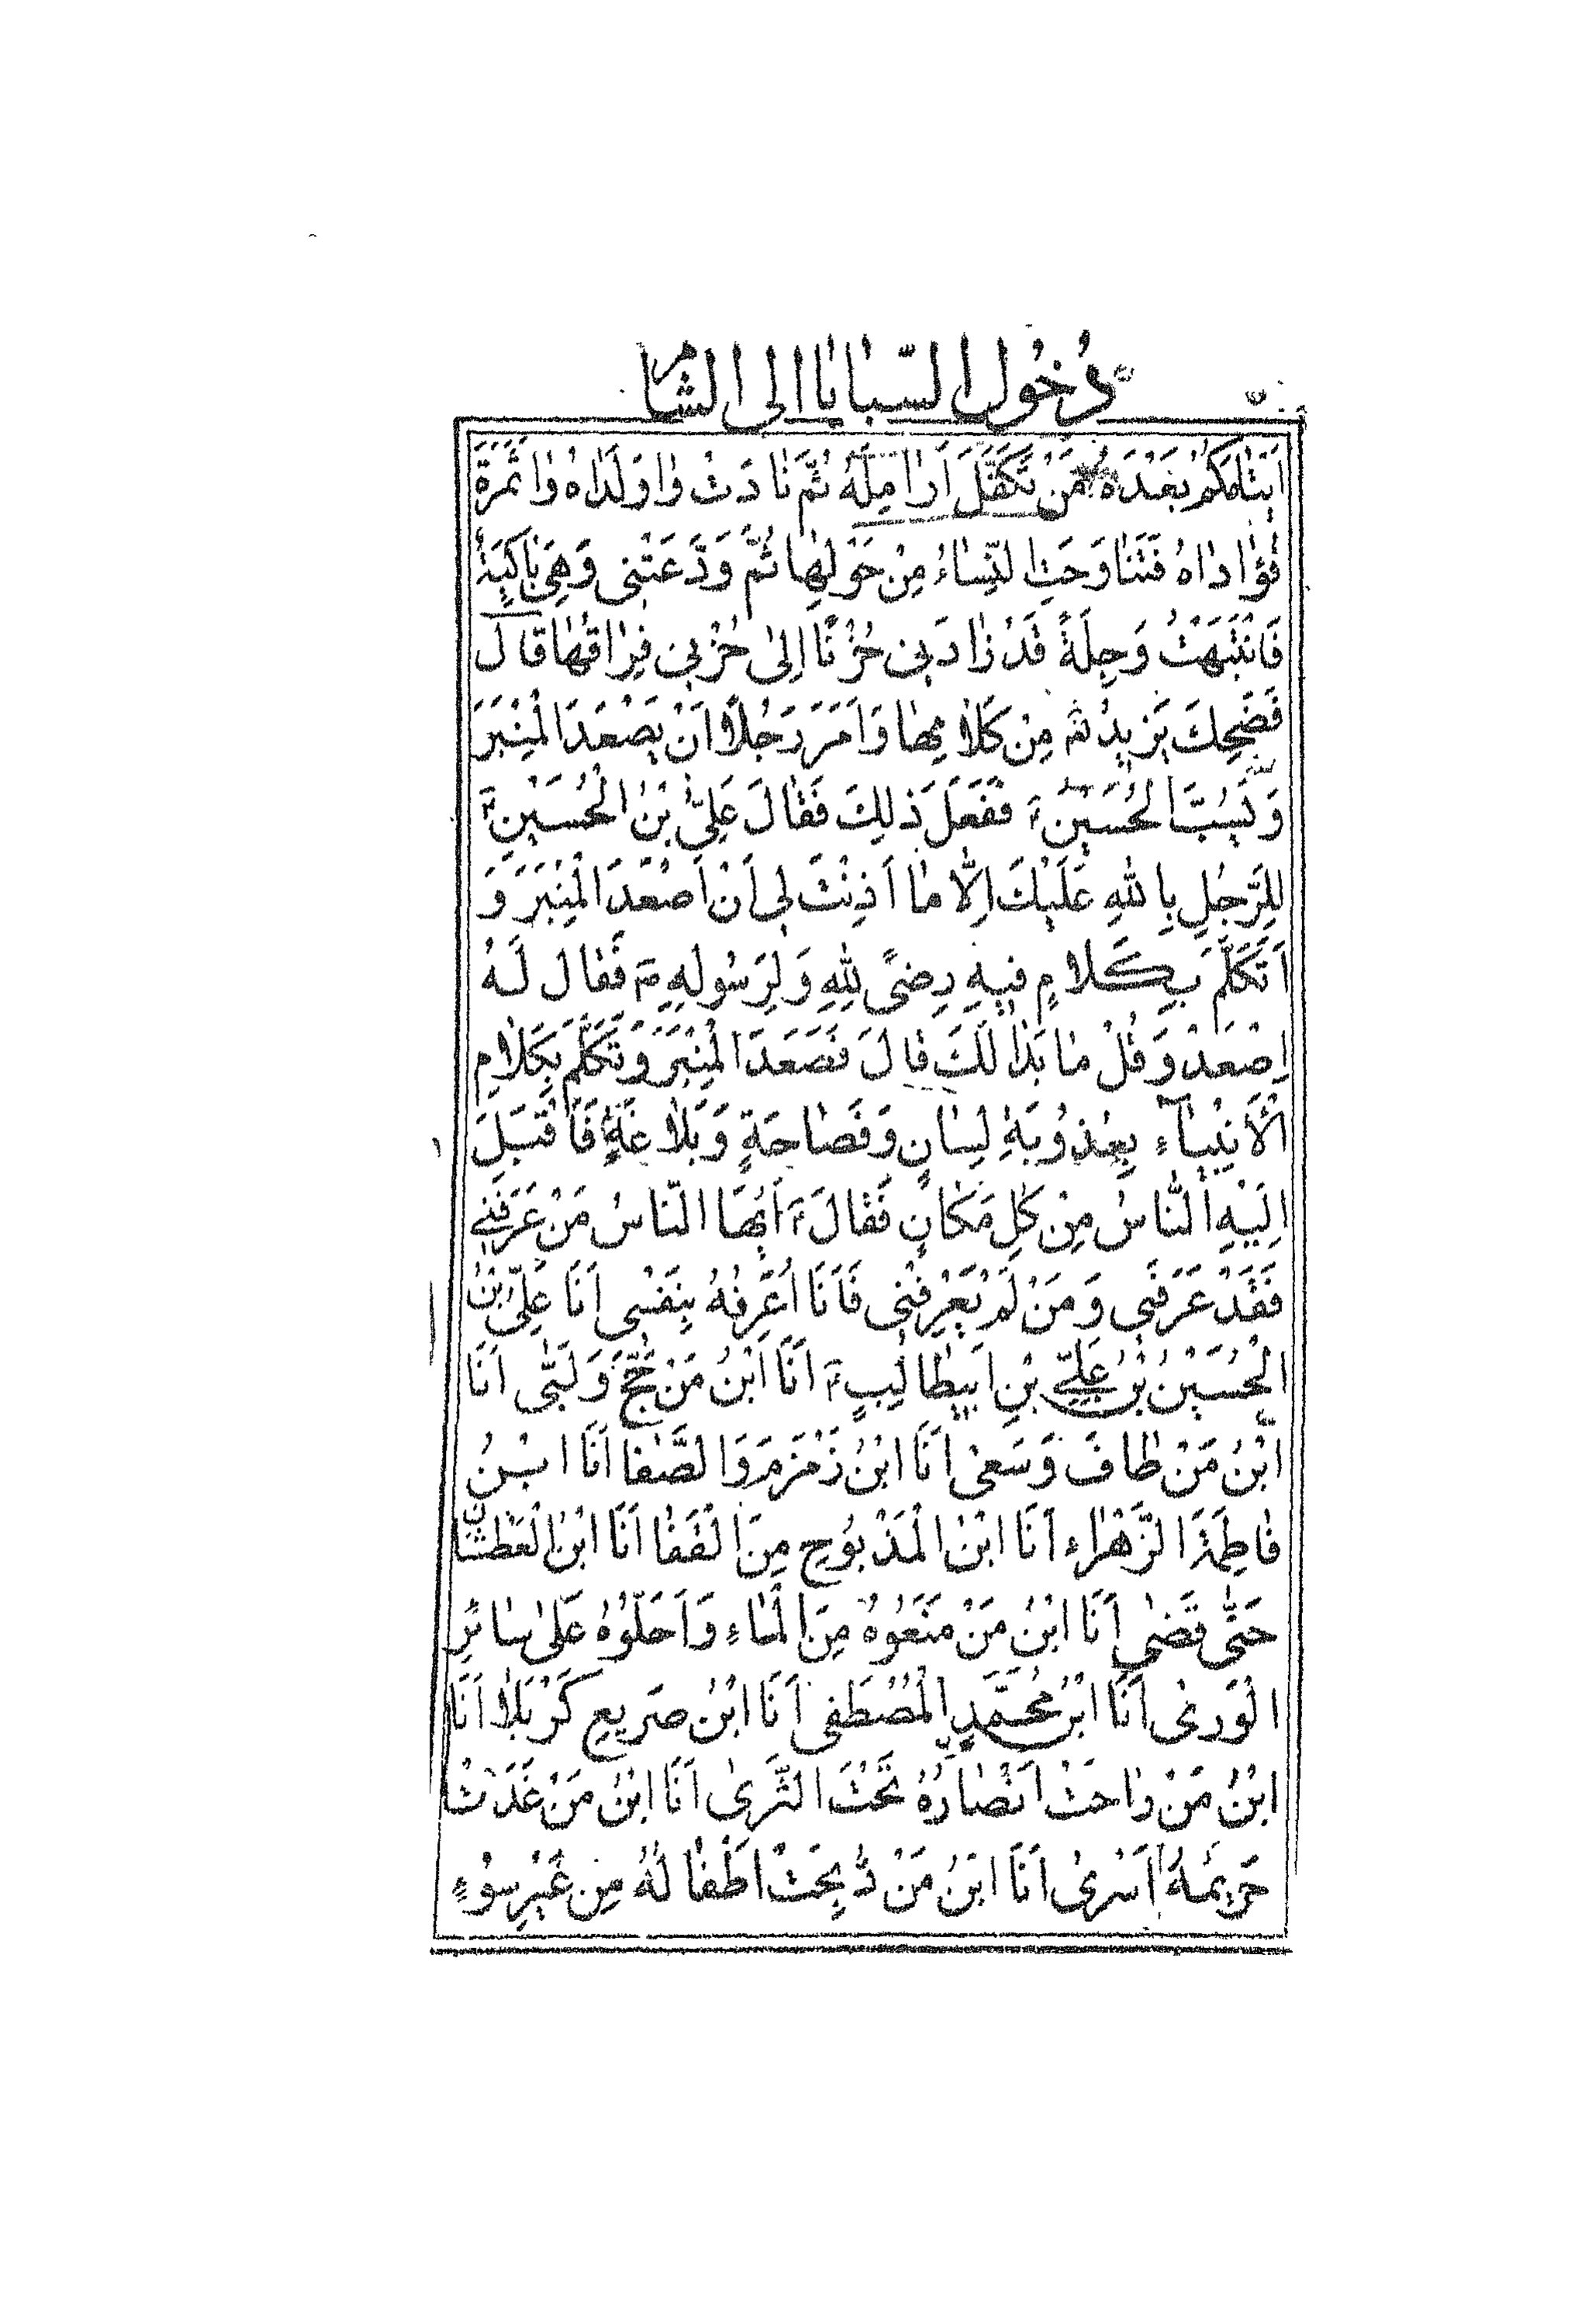 دُخُولُ السَّبَايَا اِلَى الشَّام
اَيْتَامَكُمْ بَعْدَهُ مَنْ تَكَفَّلَ اَرَامِلَهُ ثُمَّ نَادَتْ وَاوَلَدَاهُ وَاثَمَرَةَ
فُؤَادَاهُ فَتَنَاوَحَتِ النِّسَاءُ مِنْ حَوْلِهَا ثُمَّ وَدَّعَتْنِى وَهِىَ بَاكِيَةٌ
فَانْتَبَهَتْ وَجِلَةً قَدْ زَادَنِى حُزْنًا اِلىٰ حُزْنِى فِرَاقُهَا قَالَ
فَضَحِكَ يَزِيدُ مِنْ كَلَامِهَا وَاَمَرَ رَجُلًا اَنْ يَصْعَدَ الْمِنْبَرَ
وَيَسُبَّ الْحُسَيْنَ فَفَعَلَ ذٰلِكَ فَقَالَ عَلِىُّ بْنُ الْحُسَيْنِ
لِلرَّجُلِ بِاللهِ عَلَيْكَ اِلَّا مَا اَذِنْتَ لِى اَنْ اَصْعَدَ الْمِنْبَرَ وَ
اَتَكَلَّمَ بِكَلَامٍ فِيهِ رِضىً لِلهِ وَلِرَسُولِهِ فَقَالَ لَهُ
اِصْعَدْ وَقُلْ مَا بَدَا لَكَ قَالَ فَصَعَدَ الْمِنْبَرَ وَتَكَلَّمَ بِكَلَامِ
الْاَنْبِيَاءِ بِعُذُوبَةِ لِسَانٍ وَفَصَاحَةٍ وَبَلَاغَةٍ فَاَقْبَلَ
اِلَيْهِ النَّاسُ مِنْ كُلِّ مَكَانٍ فَقَالَ اَيُّهَا النَّاسُ مَنْ عَرَفَنِى
فَقَدْ عَرَفَنِى وَمَنْ لَمْ يَعْرِفْنِى فَاَنَا اُعَرِّفُهُ بِنَفْسِى اَنَا عَلِىُّ بْنُ
الْحُسَيْنِ بْنِ عَلِىِّ بْنِ اَبِيطَالِبٍ اَنَا ابْنُ مَنْ حَجَّ وَلَبّٰى اَنَا
ابْنُ مَنْ طَافَ وَسَعىٰ اَنَا ابْنُ زَمْزَمَ وَالصَّفَا اَنَا ابْنُ
فَاطِمَةَ الزَّهْرَاءِ اَنَا ابْنُ الْمَذْبُوحِ مِنَ الْقَفَا اَنَا ابْنُ الْعَطْشَانِ
حَتّٰى قَضٰى اَنَا ابْنُ مَنْ مَنَعُوهُ مِنَ الْمَاءِ وَاَحَلُّوهُ عَلىٰ سَائِرِ
الْوَرىٰ اَنَا ابْنُ مُحَمَّدٍ الْمُصْطَفٰى اَنَا ابْنُ صَرِيعِ كَرْبَلَا اَنَا
ابْنُ مَنْ رَاحَتْ اَنْصَارُهُ تَحْتَ الثَّرىٰ اَنَا ابْنُ مَنْ غَدَتْ
حَرِيمُهُ اَسْرىٰ اَنَا ابْنُ مَنْ ذُبِحَتْ اَطْفَالُهُ مِنْ غَيْرِ سُوْءٍ